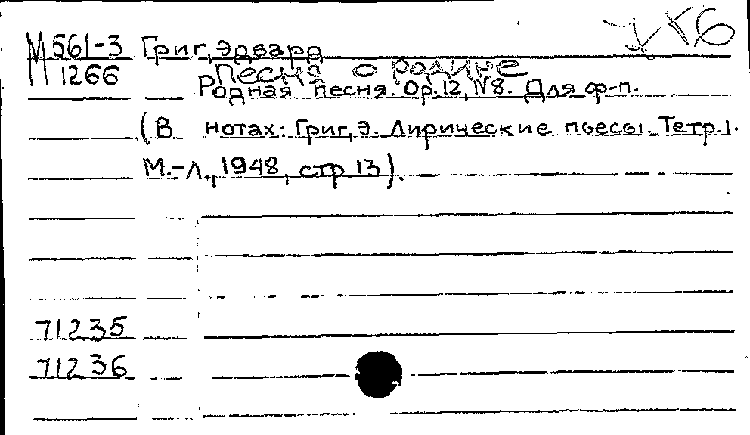 М 561-3 Григ, Эдвард
1266 Песня о родине
Родная песня. Op.12, N8. Для ф-п.
(В нотах: Григ, Э. Лирические пьесы. Тетр.1.
М.-Л., 1948, стр. 13).
71235
71236